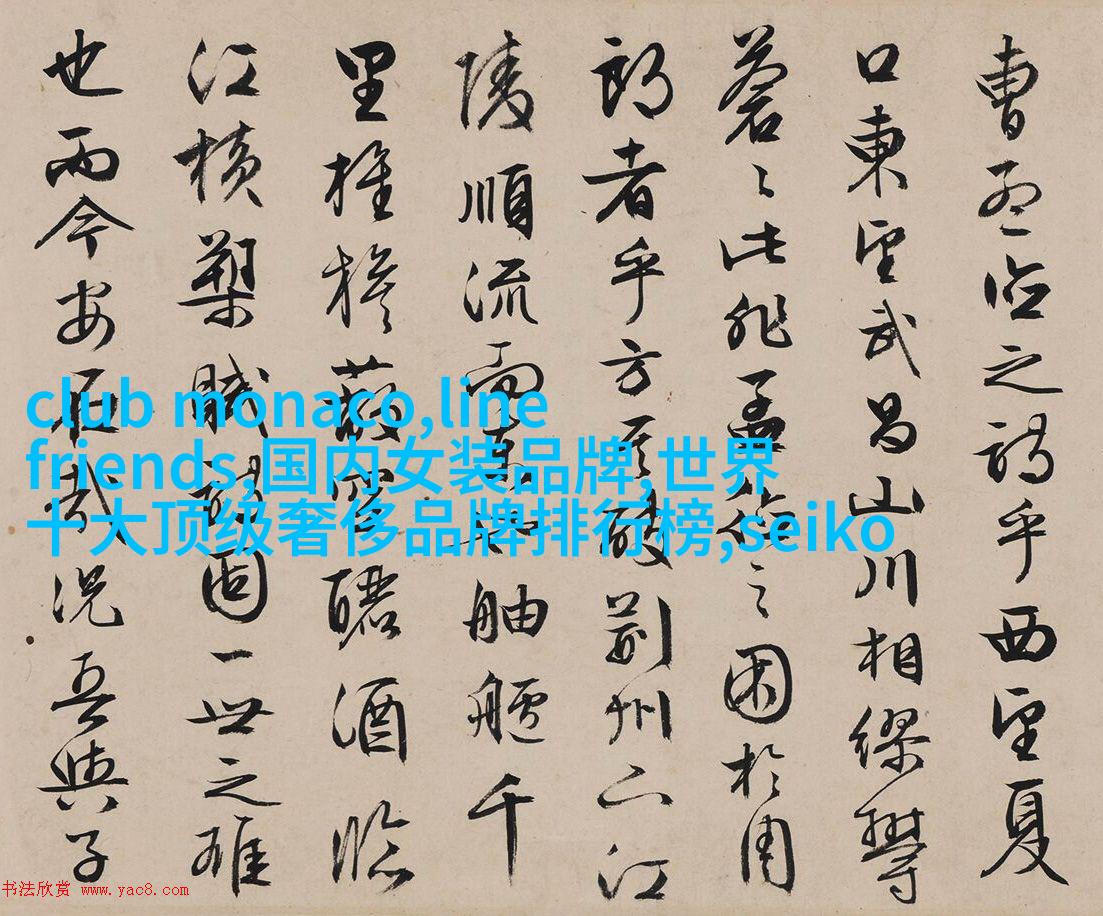 曹孟德之詩乎西望夏
口東望武昌山川相繆鬱
蒼々此非孟德之困於周
郎者乎方其破荊州下江
陵順流而東也舳艫千
里旌旗蔽空釃酒臨
江橫槊賦詩固一世之雄
也而今安在哉況吾與子
club monaco,line
friends,国内女装品牌,世界
十大顶级奢侈品牌排行榜,seiko
书法欣赏 www.yac8.com